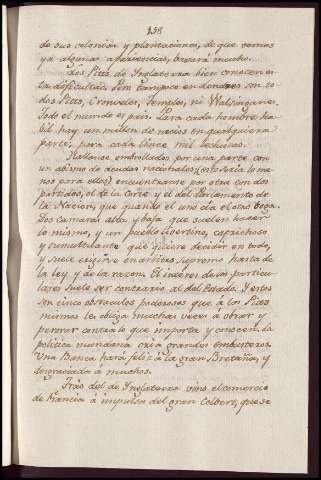 138
de sus colonias y plantaciones, de que vemos
ya algunas apariencias, bajará mucho.
Los Pites de Inglaterra bien conocen es-
ta dificultad. Pero tampoco en Londres son to-
dos Pites, Cronveles, Temples, ni Walsinganes.
Todo el mundo es pais. Para cada hombre ha-
bil hay un millon de necios en qualquiera
parte; para cada lince mil lechuzas.
Hallanse embrollados por una parte con
un abismo de deudas nacionales (esto seria lo me-
nos para ellos) encuentranse por otra con dos
partidos, el de la Corte y el del Parlamento de
la Nacion, que quando el uno cia el otro boga.
Dos camaras alta y baja que suelen hacer
lo mismo, y un pueblo libertino, caprichoso
y tumultuante que quiere decidir en todo,
y suele erigirse en arbitro supremo hasta de
la ley y de la razon. El interes de los particu-
lares suele ser contrario al del Estado. Y estos
son cinco obstaculos poderosos que á los Pites
mismos les obliga muchas veces á obrar y
pensar contra lo que importa y conocen. La
politica mundana cria grandes embusteros.
Una Banca hará feliz á la gran Bretaña, y
desgraciada á muchos.
Trás del de Inglaterra vino el comercio
de Francia á impulsos del gran Colbert, que se